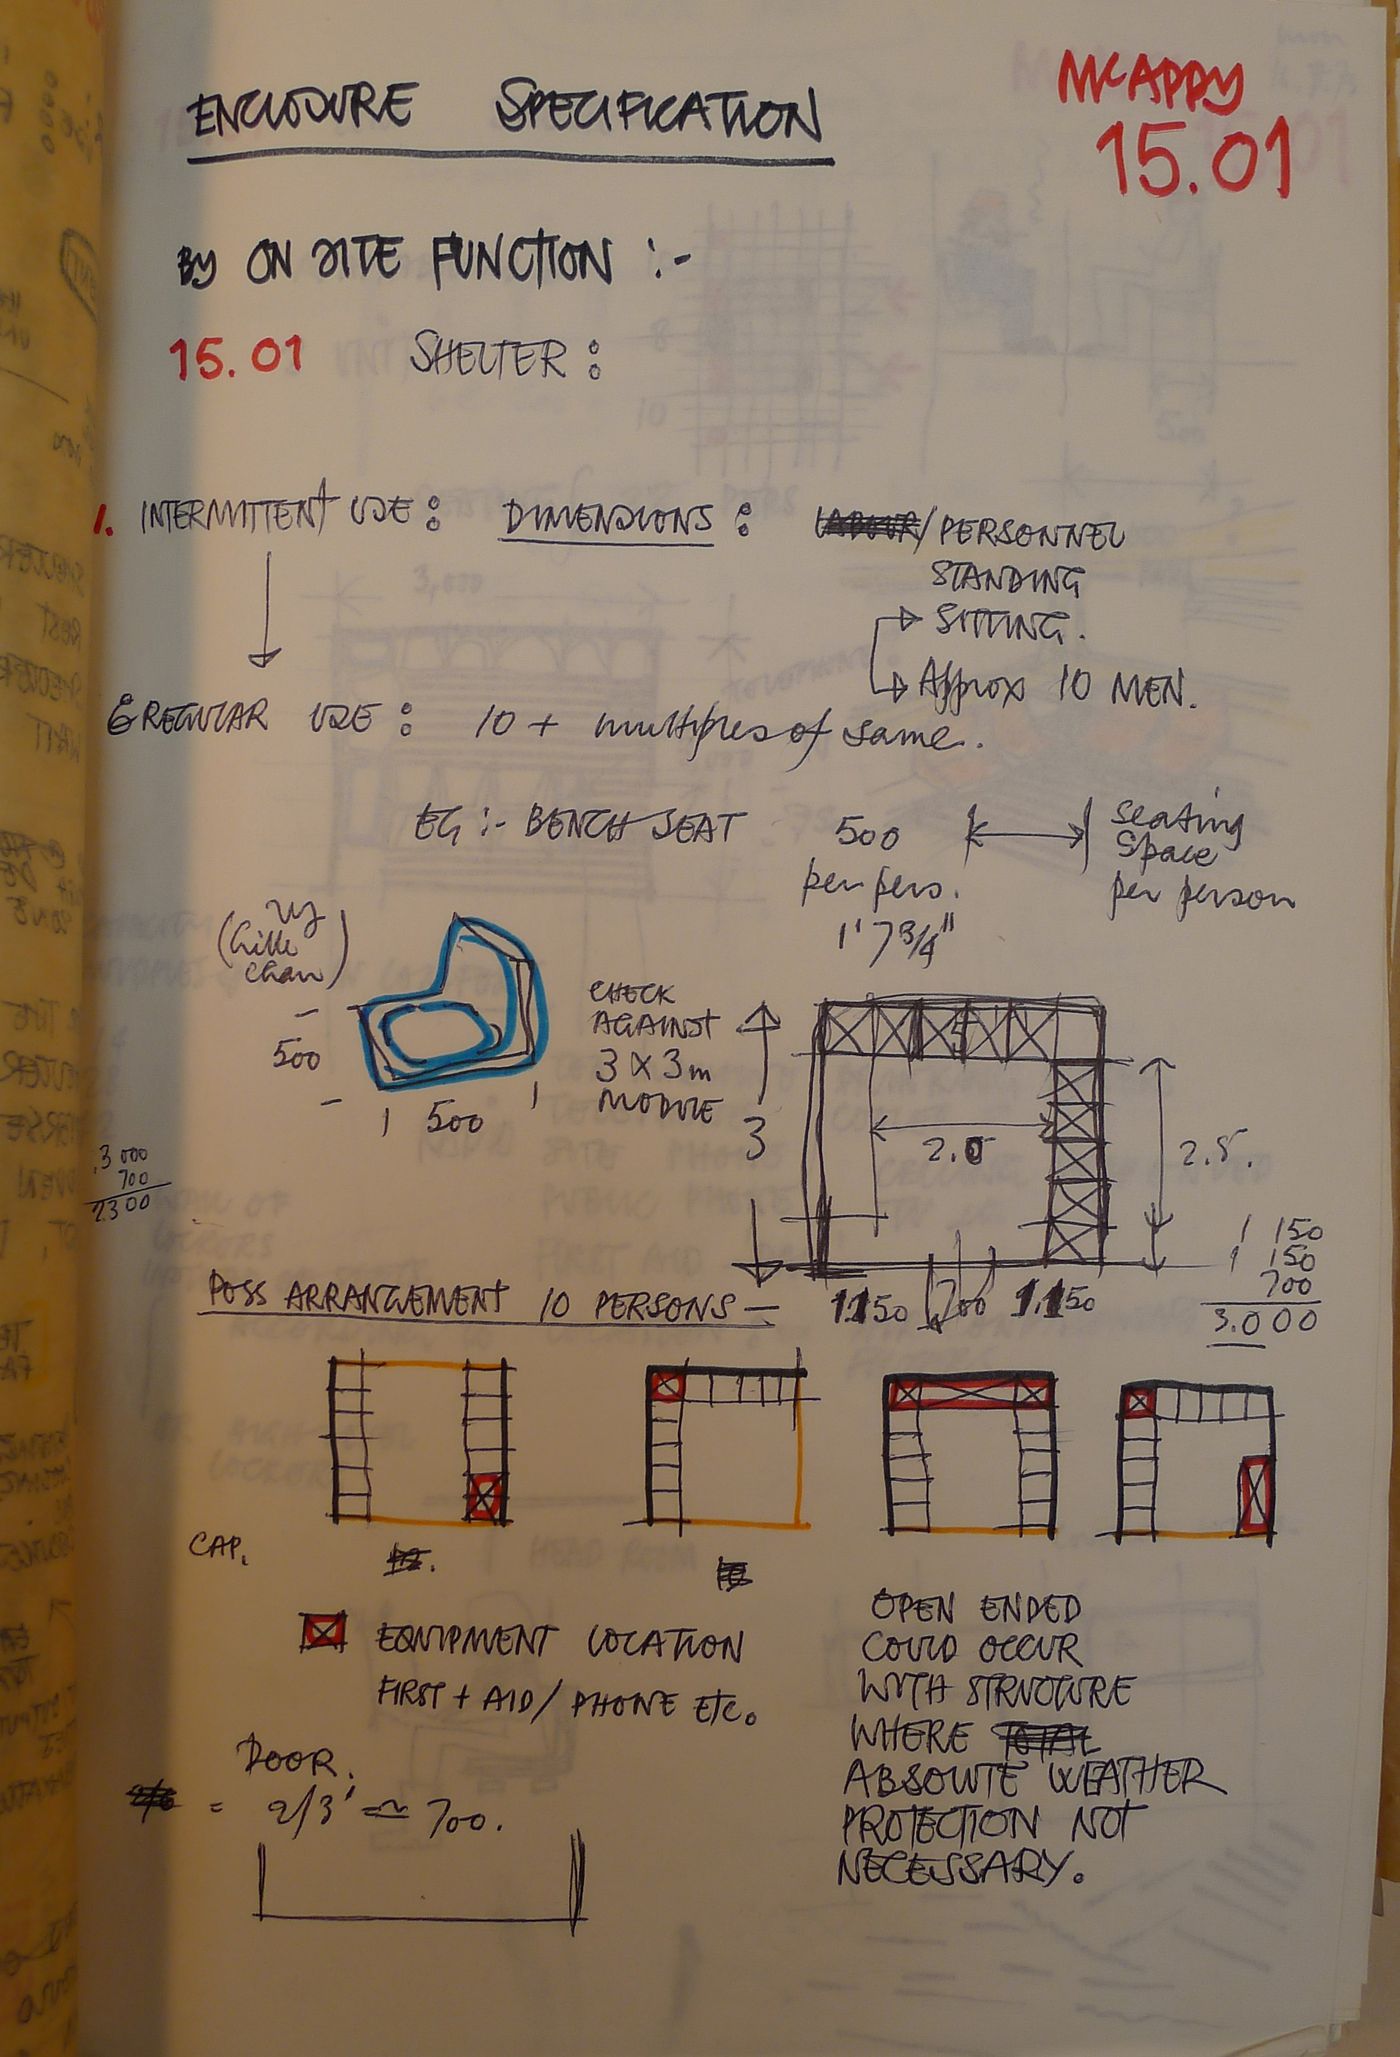 ENCLOSURE SPECIFICATION
MCAPPY
15.01
BY ON SITE FUNCTION :-
15.01 SHELTER :
1. INTERMITTENT USE : DIMENSIONS : LABOUR/PERSONNEL
STANDING
SITTING.
Approx 10 MEN.
& REGULAR USE : 10 + multiples of same.
EG :- BENCH SEAT
500
per pers.
1' 7 3/4"
Seating
Space
per person
(hille
chair)
500
500
CHECK
AGAINST
3 X 3m
MODULE
3
2.0
2.5.
3 000
700
2300
1 150
1 150
700
3.000
POSS ARRANGEMENT 10 PERSONS -
1150 700 1.150
CAP.
EQUIPMENT LOCATION
FIRST + AID / PHONE ETC.
OPEN ENDED
COULD OCCUR
WITH STRUCTURE
WHERE TOTAL
ABSOLUTE WEATHER
PROTECTION NOT
NECESSARY.
DOOR.
= 2/3' = 700.